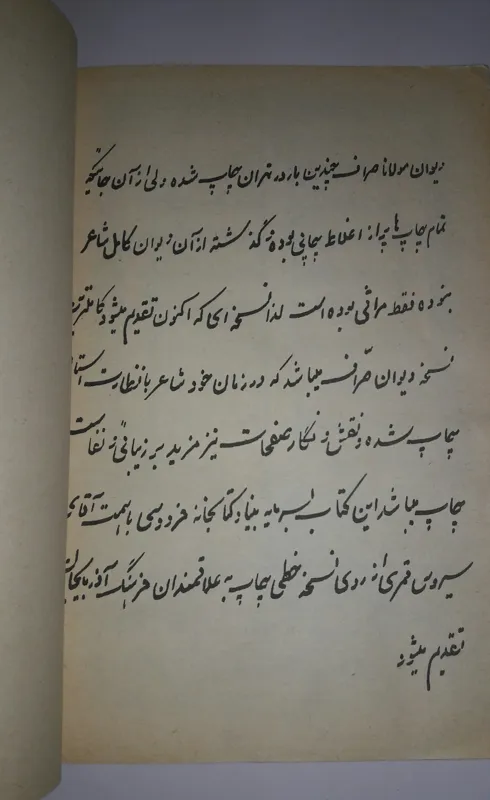 دیوان مولانا صراف چندین بار در تهران چاپ شده ولی از آن جائیکه
تمام چاپ ها پر از اغلاط چاپی بوده و گذشته از آن دیوان کامل شاعر
نبوده فقط مراثی بوده است لذا نسخه ای که اکنون تقدیم میشود کاملترین
نسخه دیوان صرّاف میباشد که در زمان خود شاعر با نظارت
بچاپ شده و نقش و نگار صفحات نیز مزید بر زیبائی و نفاست
چاپ میباشد این کتاب بسرمایه بنیاد کتابخانه فردوسی با همت آقای
سیروس قمری از روی نسخه خطی چاپ به علاقمندان فرهنگ آذربایجان
تقدیم میشود